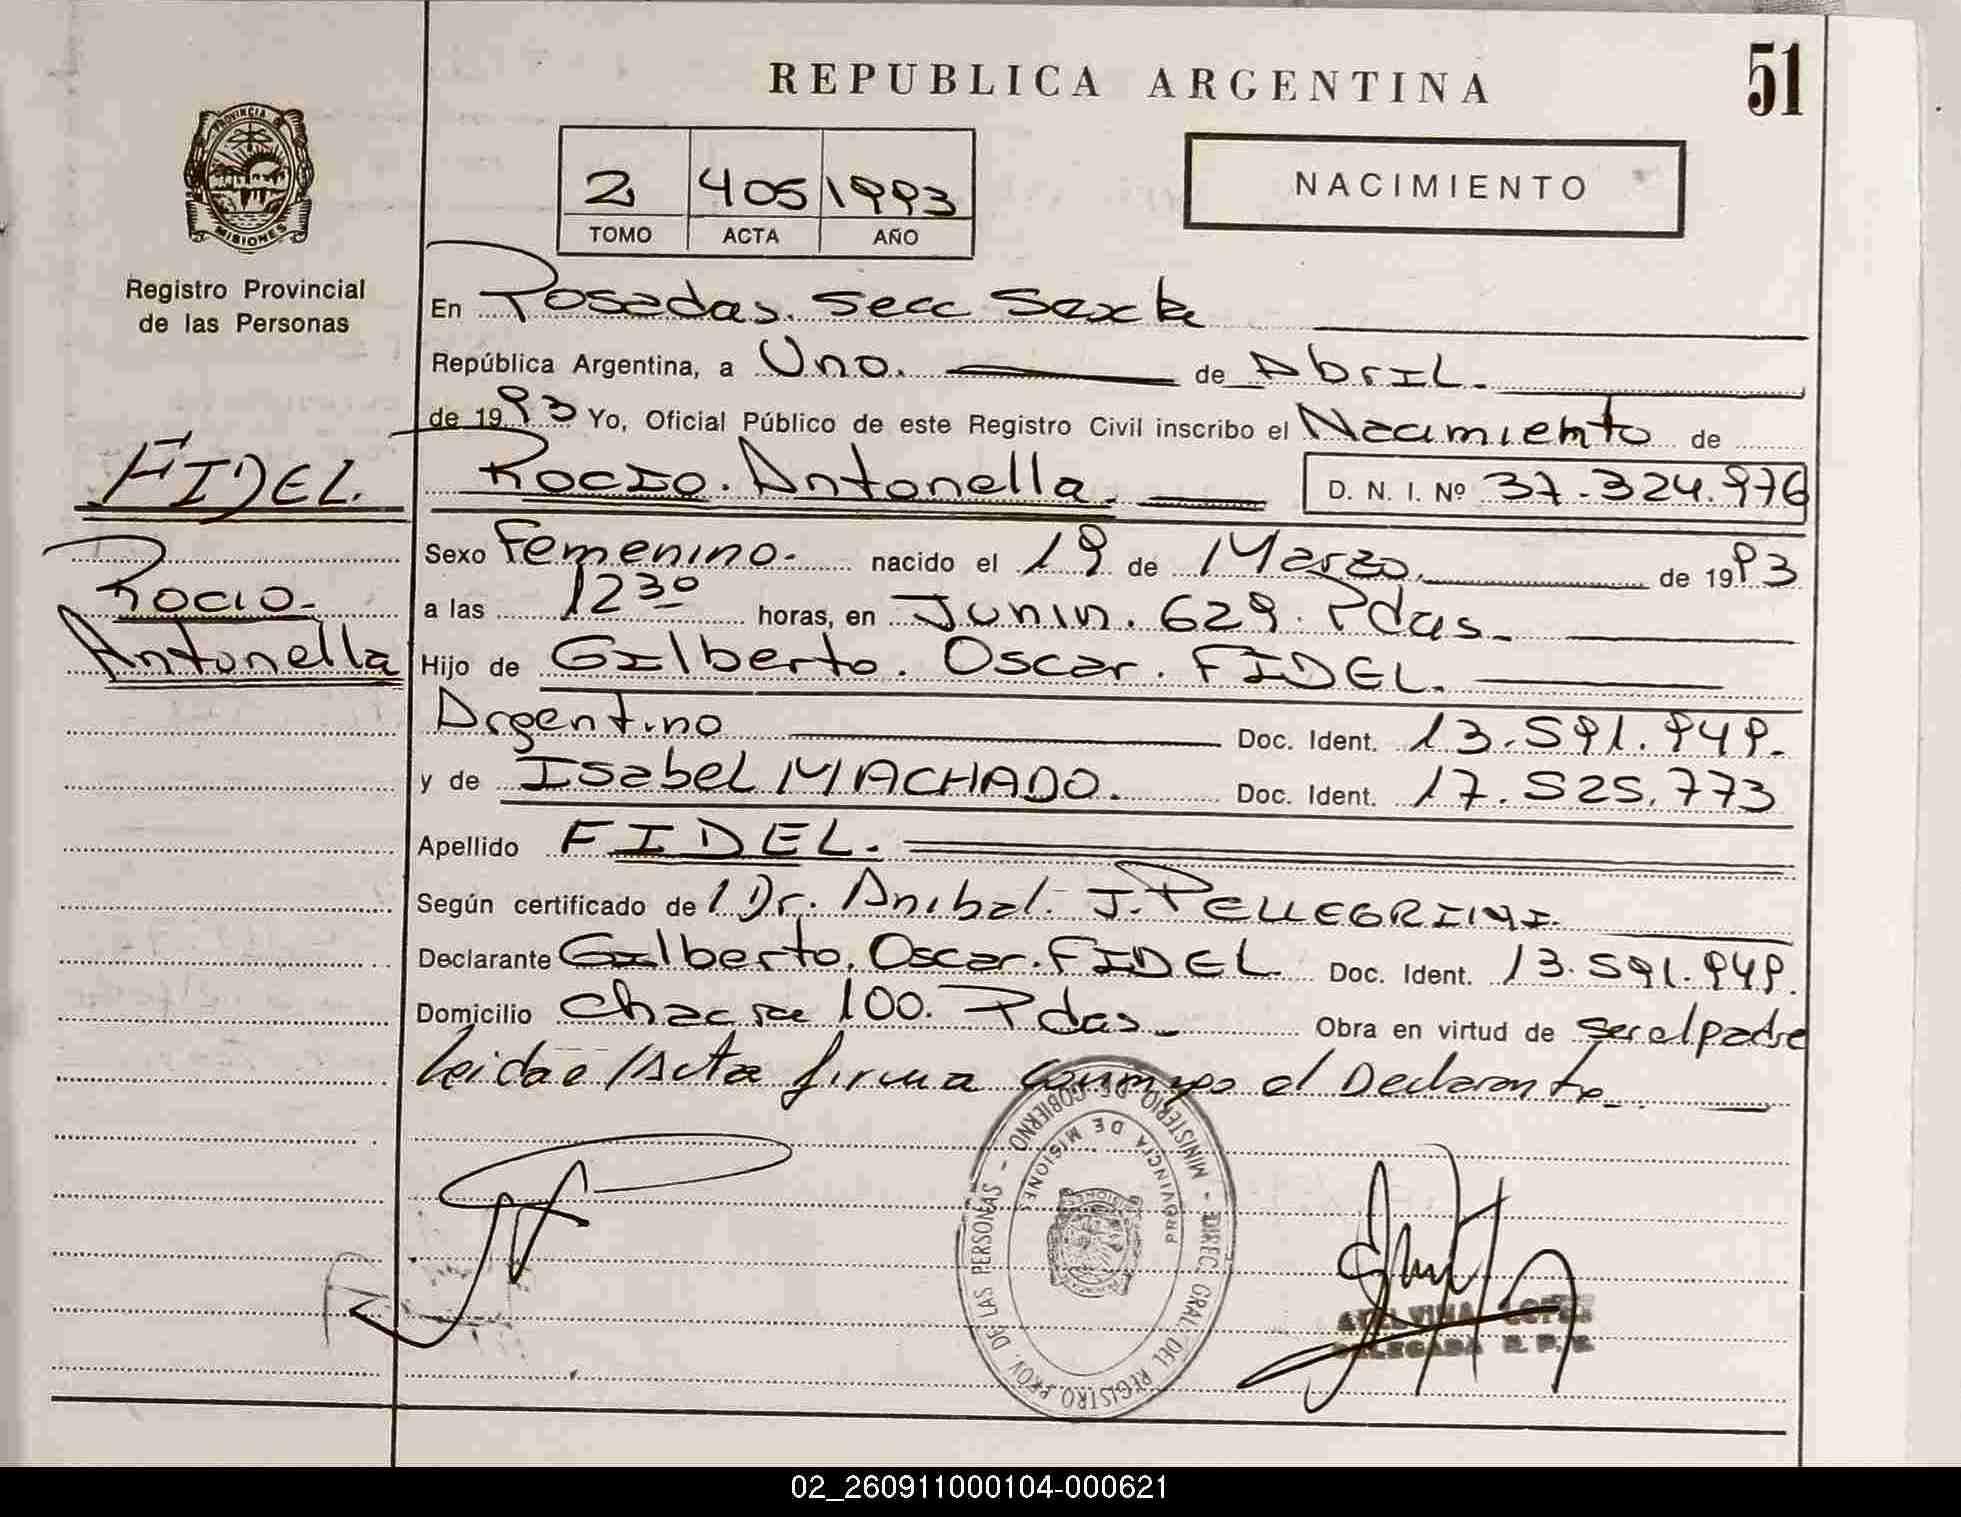 REPUBLICA ARGENTINA
51
PROVINCIA DE
MISIONES
Registro Provincial
de las Personas
2 405 1993
TOMO ACTA AÑO
NACIMIENTO
En Posadas. Secc Sexta
República Argentina, a Uno. de Abril.
de 1993 Yo, Oficial Público de este Registro Civil inscribo el Nacimiento de
FIDEL.
Rocio. Antonella. D. N. I. Nº 37.324.976
Sexo Femenino- nacido el 19 de Marzo. de 1993
Rocio-
a las 12 30 horas, en Junin. 629. Pdas.
Antonella
Hijo de Gilberto. Oscar. FIDEL.
Argentino Doc. Ident. 13.591.949.
y de Isabel MACHADO. Doc. Ident. 17.525.773
Apellido FIDEL.
Según certificado de l Dr. Anibal. J. PELLEGRINI.
Declarante Gilberto. Oscar. FIDEL. Doc. Ident. 13.591.949.
Domicilio Chacra 100. Pdas. Obra en virtud de ser el padre
Leida el Acta firma conmigo el Declarante.
DIREC. GRAL. DEL REGISTRO PROV. DE LAS PERSONAS - MINISTERIO DE GOBIERNO -
PROVINCIA DE MISIONES
DELEGADA R. P. P.
02_260911000104-000621